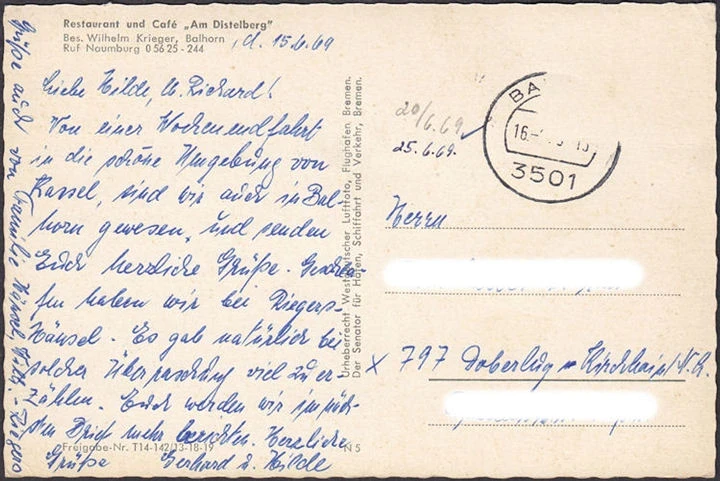 Restaurant und Café „Am Distelberg"
Bes. Wilhelm Krieger, Balhorn
Ruf Naumburg 0 56 25 - 244
, d. 15.6.69
Liebe Hilde, lb. Richard!
Von einer Wochenendfahrt
in die schöne Umgebung von
Kassel, sind wir auch in Bal-
horn gewesen, und senden
Euch herzliche Grüße. Getrof-
fen haben wir bei Ziegers-
Hänsel. Es gab natürlich bei
solcher Überraschung viel zu er-
zählen. Euch werden wir im näch-
sten Brief mehr berichten. Herzliche
Grüße Gerhard u. Hilde
Freigabe-Nr. T14-142/13-18-19
N 5
Grüße auch von Familie Hänsel,
Urheberrecht Westdeutscher Luftfoto, Flughafen Bremen.
Der Senator für Häfen, Schiffahrt und Verkehr, Bremen.
20/6.69
25.6.69.
BA
16.-
3501
Herrn
x 797 Doberlug-Kirchhain/N.L.